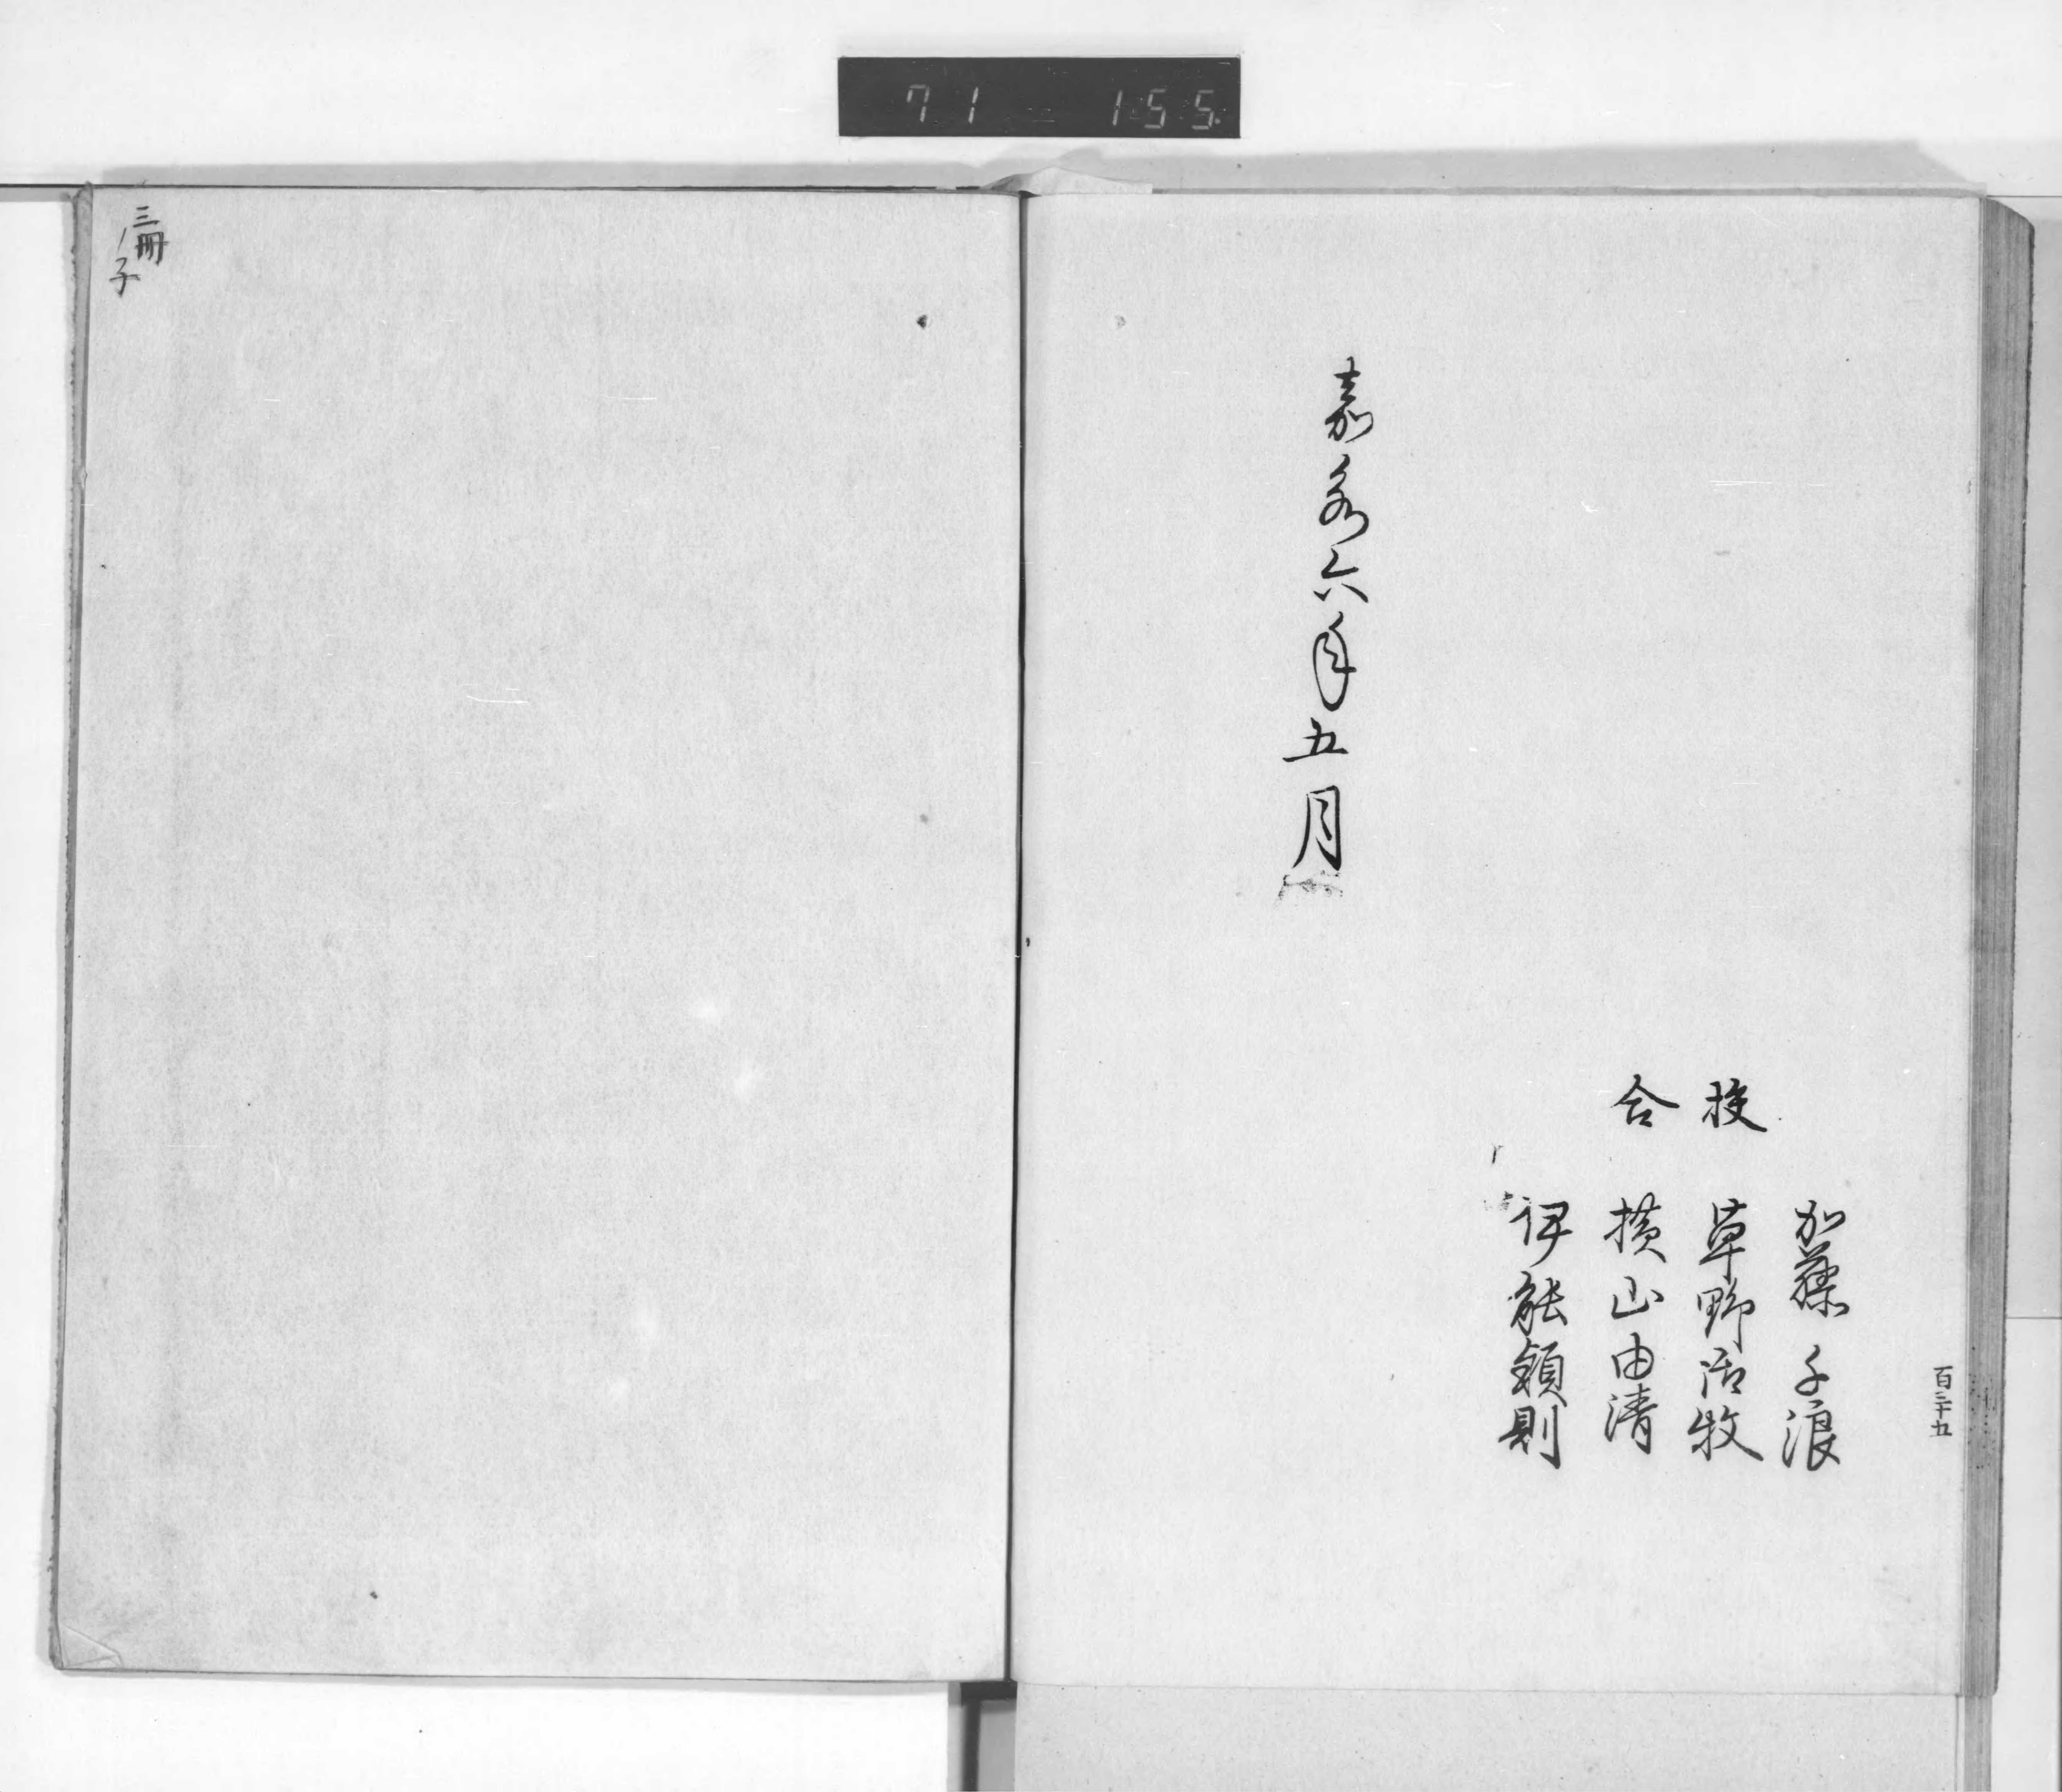 71 155
百三十五
加藤千浪
校 草野御牧
合 横山由清
伊能穎則
嘉永六年五月
三冊ノ子